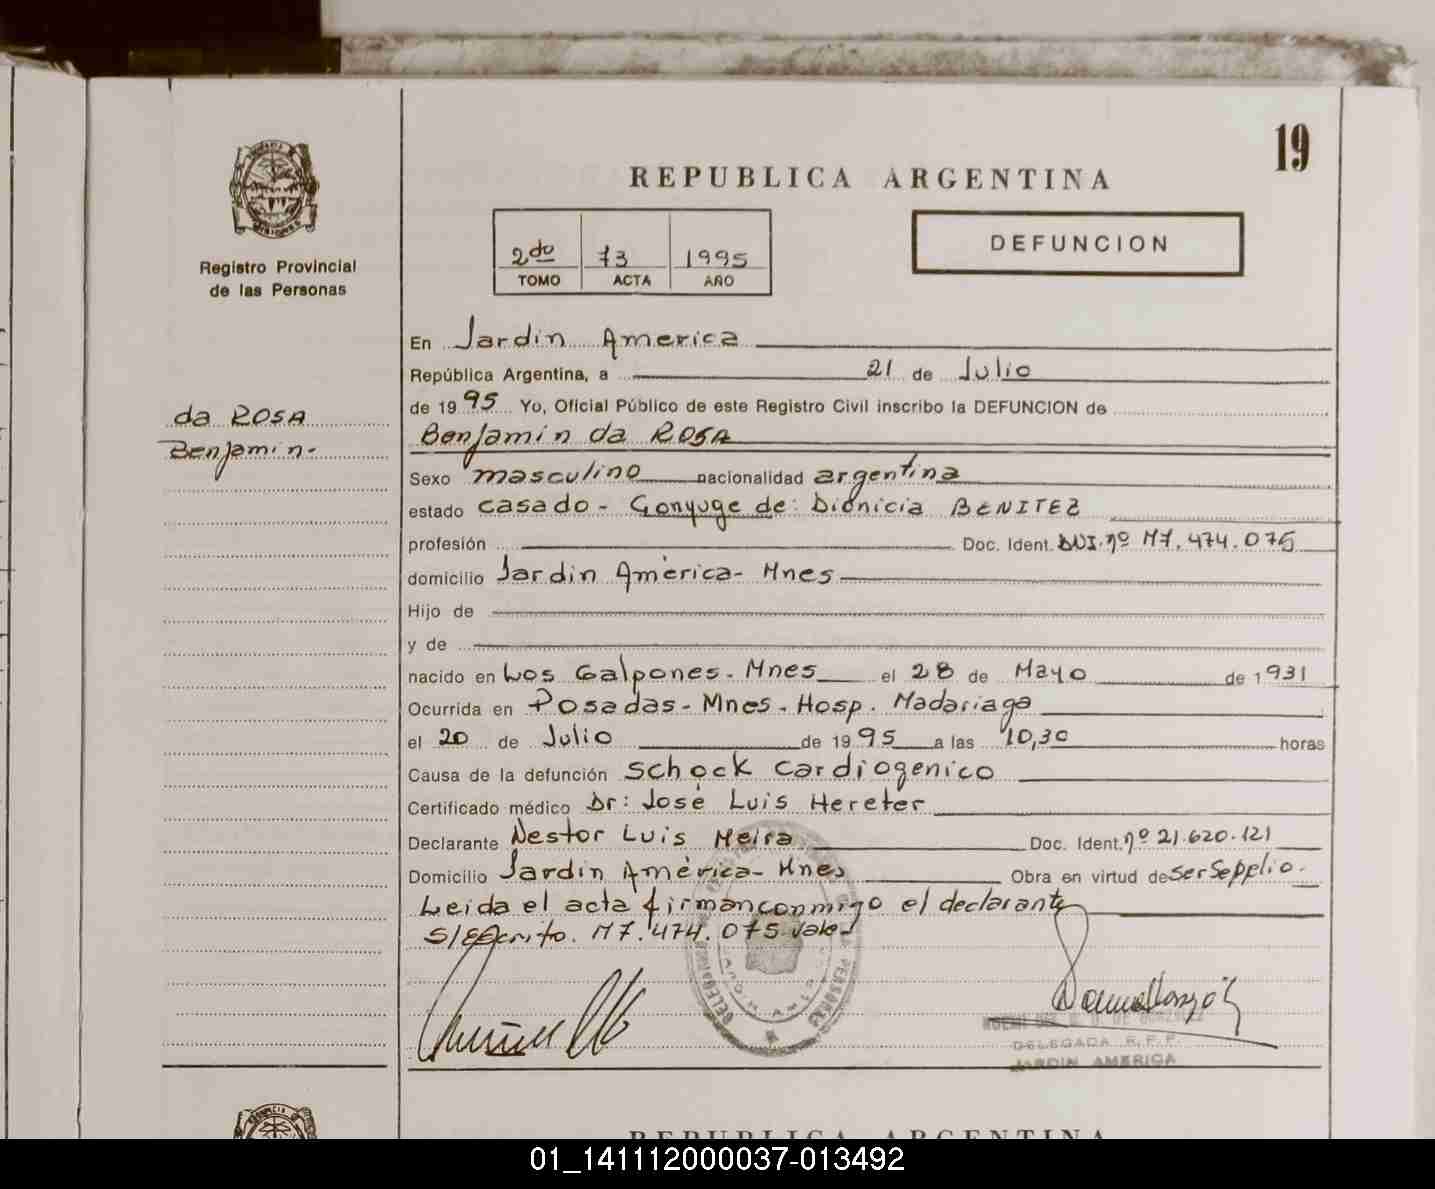 19
REPUBLICA ARGENTINA
2do 73 1995
TOMO ACTA AÑO
DEFUNCION
Registro Provincial
de las Personas
da ROSA
Benjamin-
En Jardin America
República Argentina, a 21 de Julio
de 1995 Yo, Oficial Público de este Registro Civil inscribo la DEFUNCION de
Benjamin da ROSA
Sexo masculino nacionalidad argentina
estado casado - Conyuge de: Dionicia BENITEZ
profesión Doc. Ident. DNI. nº M7.474.075
domicilio Jardin América- Mnes
Hijo de
y de
nacido en Los Galpones - Mnes el 28 de Mayo de 1931
Ocurrida en Posadas - Mnes - Hosp. Madariaga
el 20 de Julio de 1995 a las 10,30 horas
Causa de la defunción Schock cardiogenico
Certificado médico Dr: José Luis Hereter
Declarante Nestor Luis Meira Doc. Ident. nº 21.620.121
Domicilio Jardin América- Mnes Obra en virtud de ser Seppelio.
Leida el acta firman conmigo el declarante
S/Escrito. M7.474.075 vale
DELEGADA R.P.P.
JARDIN AMERICA
REPUBLICA ARGENTINA
01_141112000037-013492